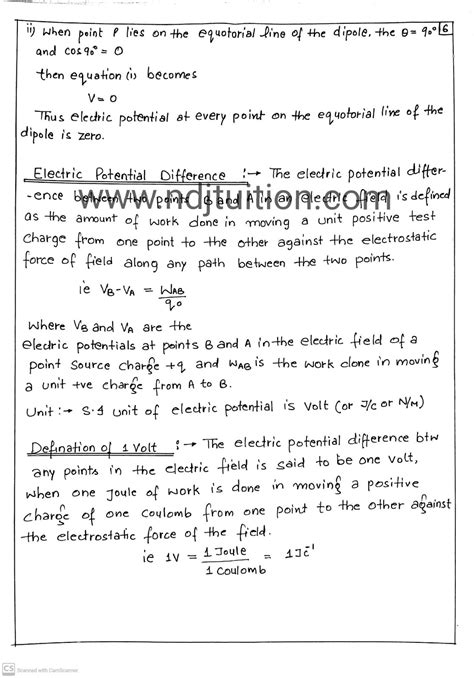 ii) When point P lies on the equotorial line of the dipole, the θ = 90° 6
and cos 90° = 0
then equation (i) becomes
V = 0
Thus electric potential at every point on the equotorial line of the
dipole is zero.
Electric Potential Difference :→ The electric potential differ-
-ence between two points B and A in an electric field is defined
www.ndjtuition.com
as the amount of work done in moving a unit positive test
Charge from one point to the other against the electrostatic
force of field along any path between the two points.
ie VB-VA = WAB
q0
Where VB and VA are the
electric potentials at points B and A in the electric field of a
point source charge +q and WAB is the work done in moving
a unit +ve charge from A to B.
Unit :→ S.I unit of electric potential is Volt (or J/C or N/M)
Defination of 1 Volt :→ The electric potential difference btw
any points in the electric field is said to be one volt,
when one Joule of work is done in moving a positive
charge of one Coulomb from one point to the other against
the electrostatic force of the field.
ie 1V = 1 Joule = 1JC⁻¹
1 Coulomb
CS Scanned with CamScanner